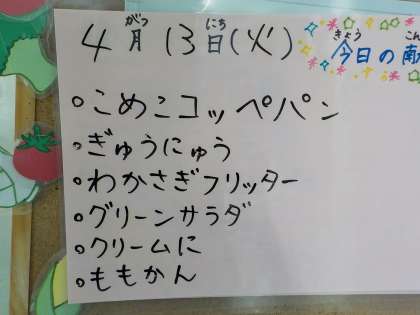 4月13日(火)
がつ にち
今日の献
きょう こん
○こめこコッペパン
○ぎゅうにゅう
○わかさぎフリッター
○グリーンサラダ
○クリームに
○ももかん